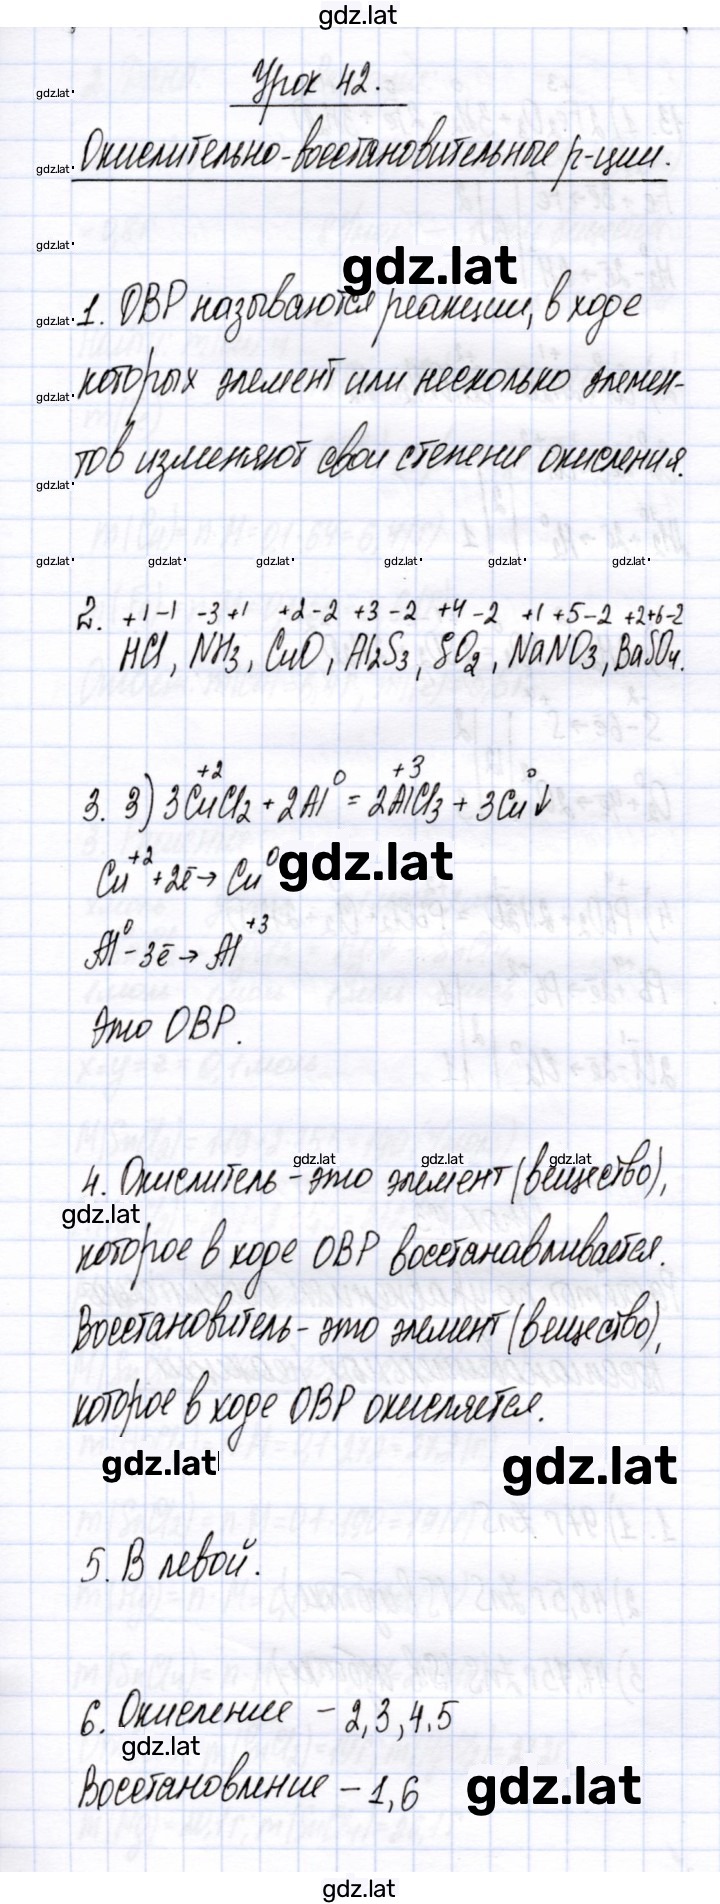 gdz.lat
Урок 42.
gdz.lat
Окислительно-восстановительные р-ции.
gdz.lat
gdz.lat
gdz.lat
1. ОВР называются реакции, в ходе
gdz.lat
которых элемент или несколько элемен-
gdz.lat
тов изменяют свои степени окисления.
gdz.lat
gdz.lat gdz.lat gdz.lat gdz.lat gdz.lat gdz.lat
2. +1 -1 -3 +1 +2 -2 +3 -2 +4 -2 +1 +5 -2 +2 +6 -2
HCl, NH3, CuO, Al2S3, SO2, NaNO3, BaSO4.
+2 0 +3 0
3. 3) 3CuCl2 + 2Al = 2AlCl3 + 3Cu↓
Cu+2 +2ē → Cu0
gdz.lat
Al0 - 3ē → Al+3
Это ОВР.
gdz.lat gdz.lat gdz.lat
4. Окислитель - это элемент (вещество),
gdz.lat
которое в ходе ОВР восстанавливается.
Восстановитель - это элемент (вещество),
которое в ходе ОВР окисляется.
gdz.lat gdz.lat
5. В левой.
6. Окисление - 2,3,4.5
gdz.lat
Восстановление - 1,6
gdz.lat
gdz.lat